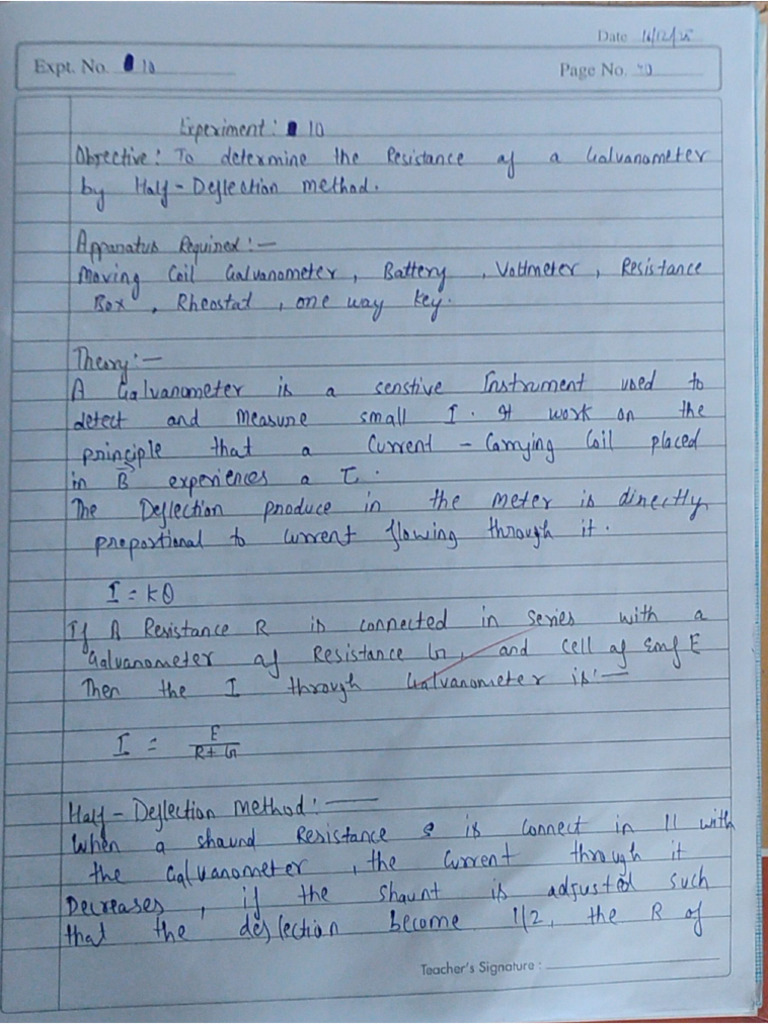 Date 16/12/25
Expt. No. 10
Page No. 40
Experiment: 10
Objective: To determine the Resistance of a Galvanometer
by Half-Deflection method.
Apparatus Required:—
Moving Coil Galvanometer, Battery, Voltmeter, Resistance
Box, Rheostat, one way key.
Theory:—
A Galvanometer is a senstive Instrument used to
detect and measure small I. It work on the
principle that a Current-Carrying Coil placed
in B⃗ experiences a τ.
The Deflection produce in the meter is directly
propostional to current flowing through it.
I = kθ
If A Resistance R is connected in series with a
Galvanometer of Resistance G, and cell of Emf E
Then the I through Galvanometer is:—
I = E/R+G
Half-Deflection method:—
When a shaund Resistance S is Connect in || with
the Galvanometer, the Current through it
Decreases, if the Shaunt is adjusted such
that the deflection become 1/2, the R of
Teacher's Signature: